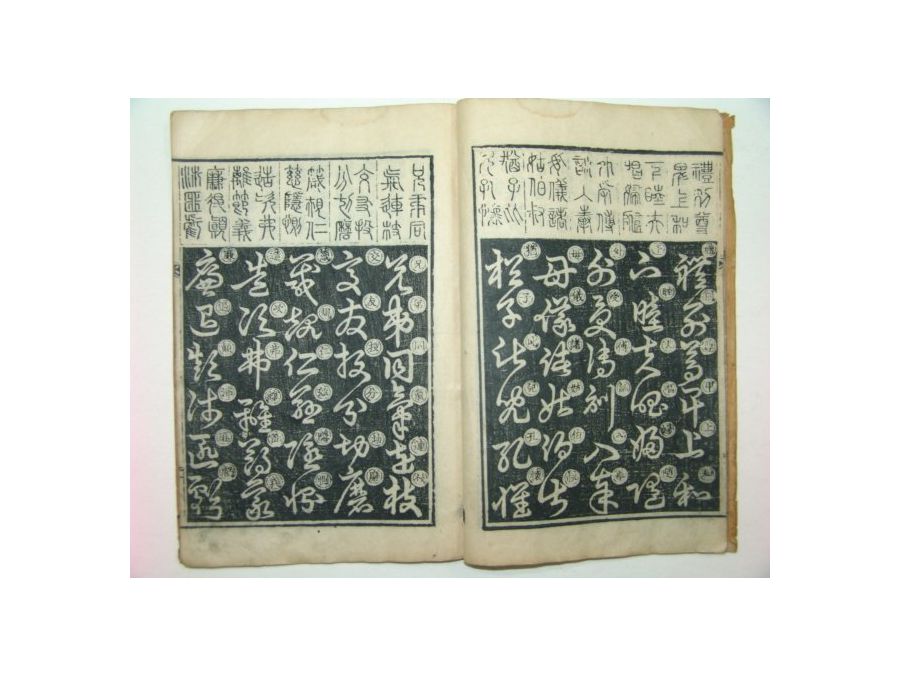 禮別尊
卑上和
下睦夫
唱婦隨
外受傅
訓入奉
母儀諸
姑伯叔
猶子比
兒孔懷
禮別尊卑上和
下睦夫唱婦隨
外受傅訓入奉
母儀諸姑伯叔
猶子比兒孔懷
兄弟同
氣連枝
交友投
分切磨
箴規仁
慈隱惻
造次弗
離節義
廉退顛
沛匪虧
兄弟同氣連枝
交友投分切磨
箴規仁慈隱惻
造次弗離節義
廉退顛沛匪虧